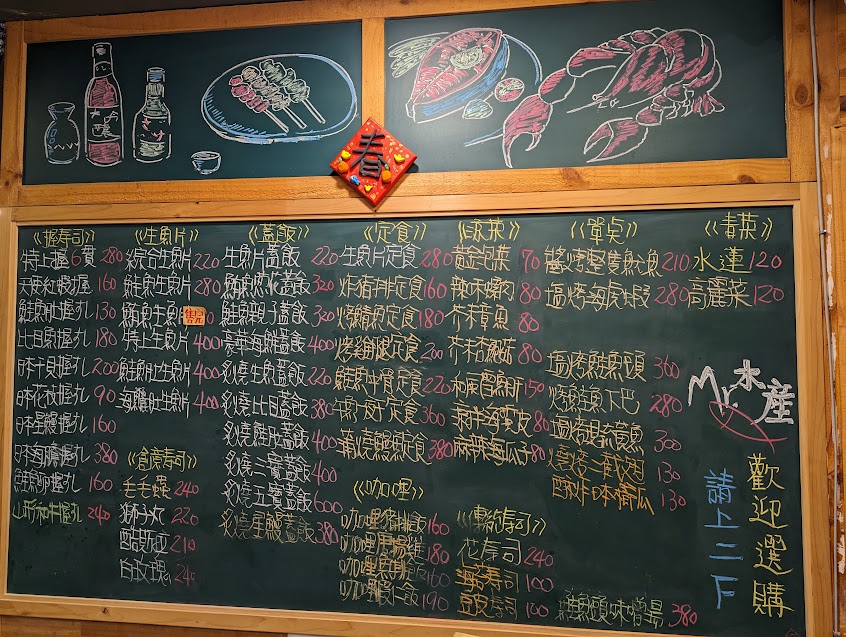 大吟釀
春
《握寿司》
特上握6貫 280
天使紅蝦握 160
鮭魚肚握 130
比目魚握 180
日本干貝握 200
日本花枝握 90
日本星鰻握 160
日本海膽握 380
鮭魚卵握 160
山形和牛握 240
《生魚片》
綜合生魚片 220
鮭魚生魚片 280
鮪魚生魚片
售完
特上生魚片 400
鮭魚肚生魚片 400
海膽生魚片 400
《創意寿司》
毛毛蟲 240
獅子丸 220
酷斯拉 210
白玫瑰 240
《蓋飯》
生魚片蓋飯 220
鮪魚蔥花蓋飯 320
鮭魚親子蓋飯 320
豪華海鮮蓋飯 400
炙燒生魚蓋飯 220
炙燒比目蓋飯 380
炙燒鮭肚蓋飯 400
炙燒三寶蓋飯 400
炙燒五寶蓋飯 600
炙燒星鰻蓋飯 380
《定食》
生魚片定食 280
炸豬排定食 160
烤鯖魚定食 180
烤雞腿定食 200
鮭魚 定食 220
定食 360
蒲燒鰻魚定食 380
《咖哩》
咖哩豬排飯 160
咖哩 雞飯 180
咖哩魚排飯 160
咖哩蝦仁飯 190
《涼菜》
黃金泡菜 70
辣味螺肉 80
芥末章魚 80
芥末 80
150
80
麻辣海瓜子 80
《軟絲寿司》
花寿司 240
海苔寿司 100
豆皮寿司 100
《單點》
醬烤整隻魷魚 210
塩烤海虎蝦 280
塩烤鮭魚頭 360
烤鮭魚下巴 280
塩烤 魚 300
燒烤三節翅 130
酥炸日本南瓜 130
鮭魚頭味噌湯 380
《青菜》
水蓮 120
高麗菜 120
Mr.水産
歡迎選購
請上二F